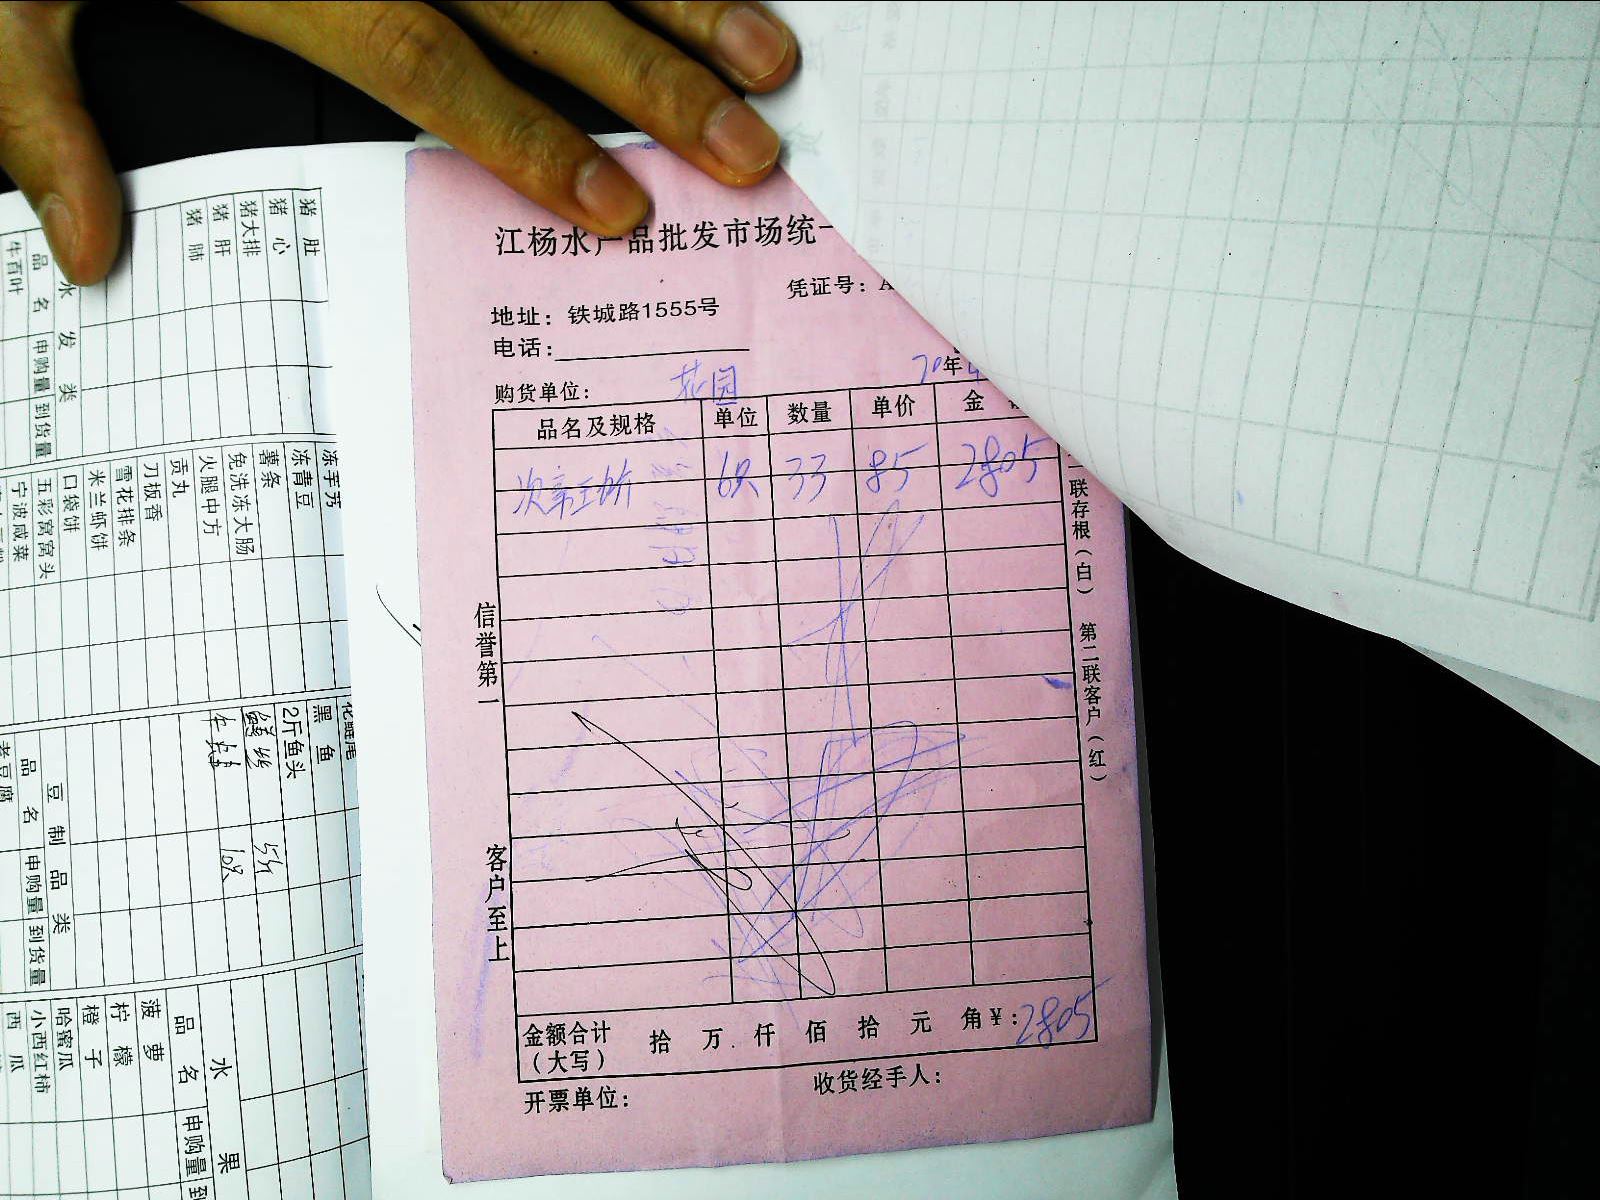 江杨水产品批发市场统一
凭证号：A
地址：铁城路1555号
电话：
购货单位： 花园
20年
品名及规格 单位 数量 单价 金
6只 33 85 2805
信誉第一
客户至上
联存根（白） 第二联客户（红）
金额合计（大写） 拾 万 仟 佰 拾 元 角 ¥：2805
开票单位：
收货经手人：
猪肚
猪心
猪大排
猪肝
猪肺
水发类
品名 申购量 到货量
牛百叶
冻芋艿
冻青豆
薯条
免洗冻大肠
火腿中方
贡丸
刀板香
雪花排条
米兰虾饼
口袋饼
五彩窝窝头
宁波咸菜
花鲢尾
黑鱼
2斤鱼头
鳝丝 5斤
牛蛙 10只
豆制品类
品名 申购量 到货量
老豆腐
水果
品名 申购量 到
菠萝
柠檬
橙子
哈蜜瓜
小西红柿
西瓜